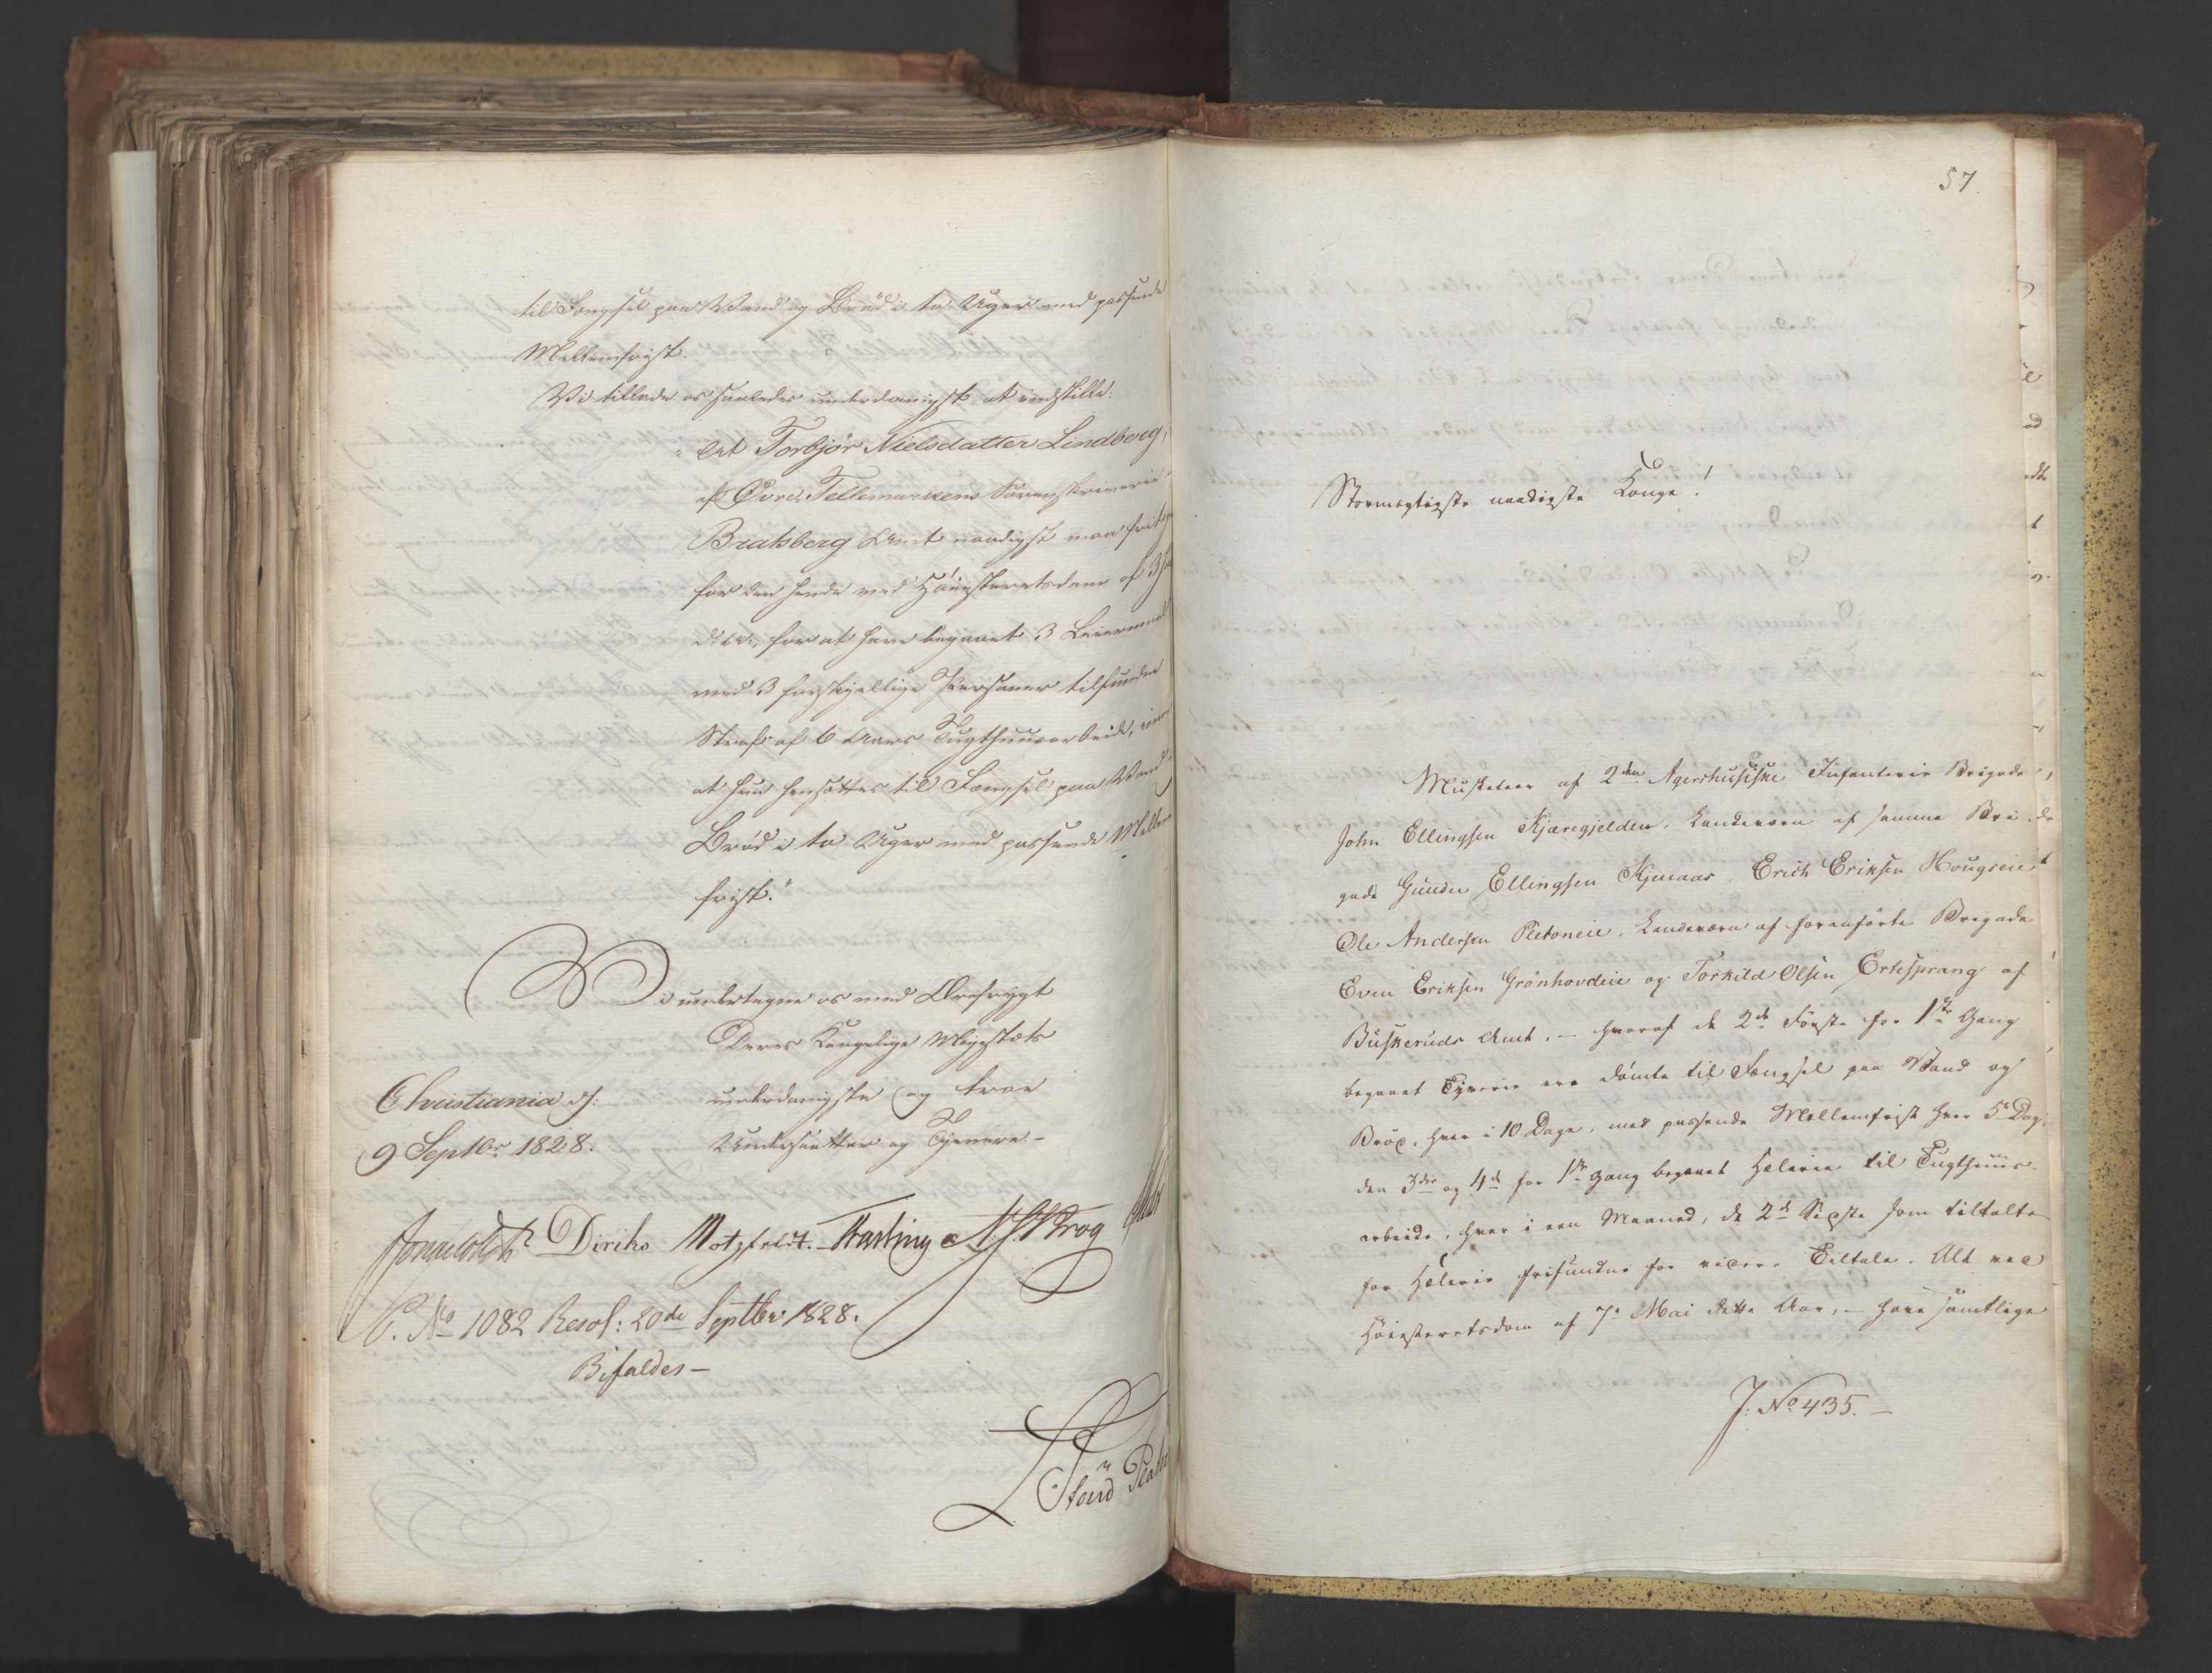 til Fængsel paa Vand og Brød i to Uger med passende
Mellemfrist.
Vi tillade os saaledes underdanigst at indstille:
"At Torbjør Nielsdatter Lindberg,
af Øvre Tellemarkens Sorenskriverie
Bratsberg Amt naadigst maa fritages
for den hende ved Høiesteretsdom af
d. A., for at have begaaet 3 Leiermaal
med 3 forskjellige Personer tilfundne
Straf af 6 Aars Tugthuusarbeide, imod
at hun hensættes til Fængsel paa Vand
Brød i to Uger med passende Mellem
frist."
Vi undertegne os med Ærefrygt
Deres Kongelige Majestæts
Christiania d:
underdanigste og troe
9 Septbr 1828.
Undersaatter og Tjenere.-
Diriks Motzfeldt. Fasting Krog
C. No 1082 Resol: 20de Septbr 1828.
Bifaldes-
57.
Stormægtigste naadigste Konge!
Musketeer af 2den Agershusiske Infanterie Brigade,
John Ellingsen Kjæregjelden, Landeværn af samme Bri-
gade Gunder Ellingsen Kjenaas, Erich Eriksen Hougseie
Ole Andersen Pletoneie, Landeværn af foranførte Brigade
Even Eriksen Grønhovdeie og Torkild Olsen Ertesprang af
Buskeruds Amt, - hvoraf de 2de Første for 1ste Gang
begaaet Tyverie ere dømte til Fængsel paa Vand og
Brød, hver i 10 Dage, med passende Mellemfrist hver 5te Dag,
den 3die og 4de for 1ste Gang begaaet Hælerie til Tugthuus-
arbeide, hver i een Maaned, de 2de Sidste som tiltalte
for Hælerie frifundne for videre Tiltale. Alt ved
Høiesteretsdom af 7de Mai dette Aar, - have samtlige
J: No 435.-